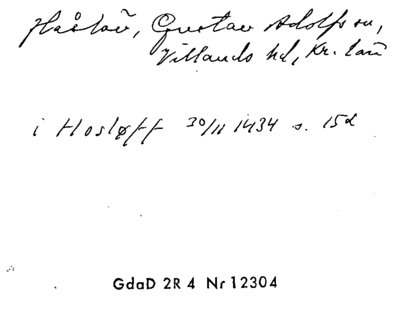 Håslöv, Gustav Adolfs sn,
Villands hd, Kr. län
i Hosløff 30/11 1434 s. 152
GdaD 2R4 Nr 12304